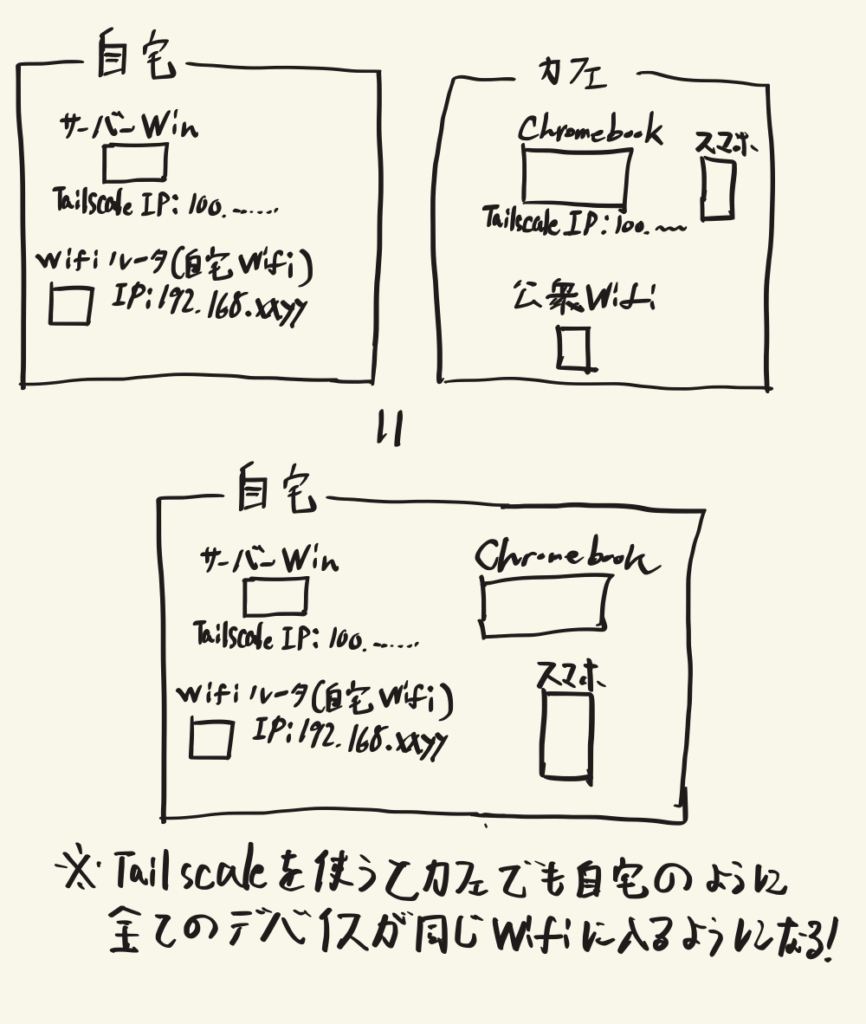 自宅
サーバーWin
Tailscale IP: 100.......
Wifiルータ(自宅Wifi)
IP:192.168.xxyy
カフェ
Chromebook
スマホ
Tailscale IP:100.~~
公衆Wifi
=
自宅
サーバーWin
Tailscale IP: 100.......
Wifiルータ(自宅Wifi)
IP:192.168.xxyy
Chromebook
スマホ
※Tailscaleを使うとカフェでも自宅のように
全てのデバイスが同じWifiに入るようになる!